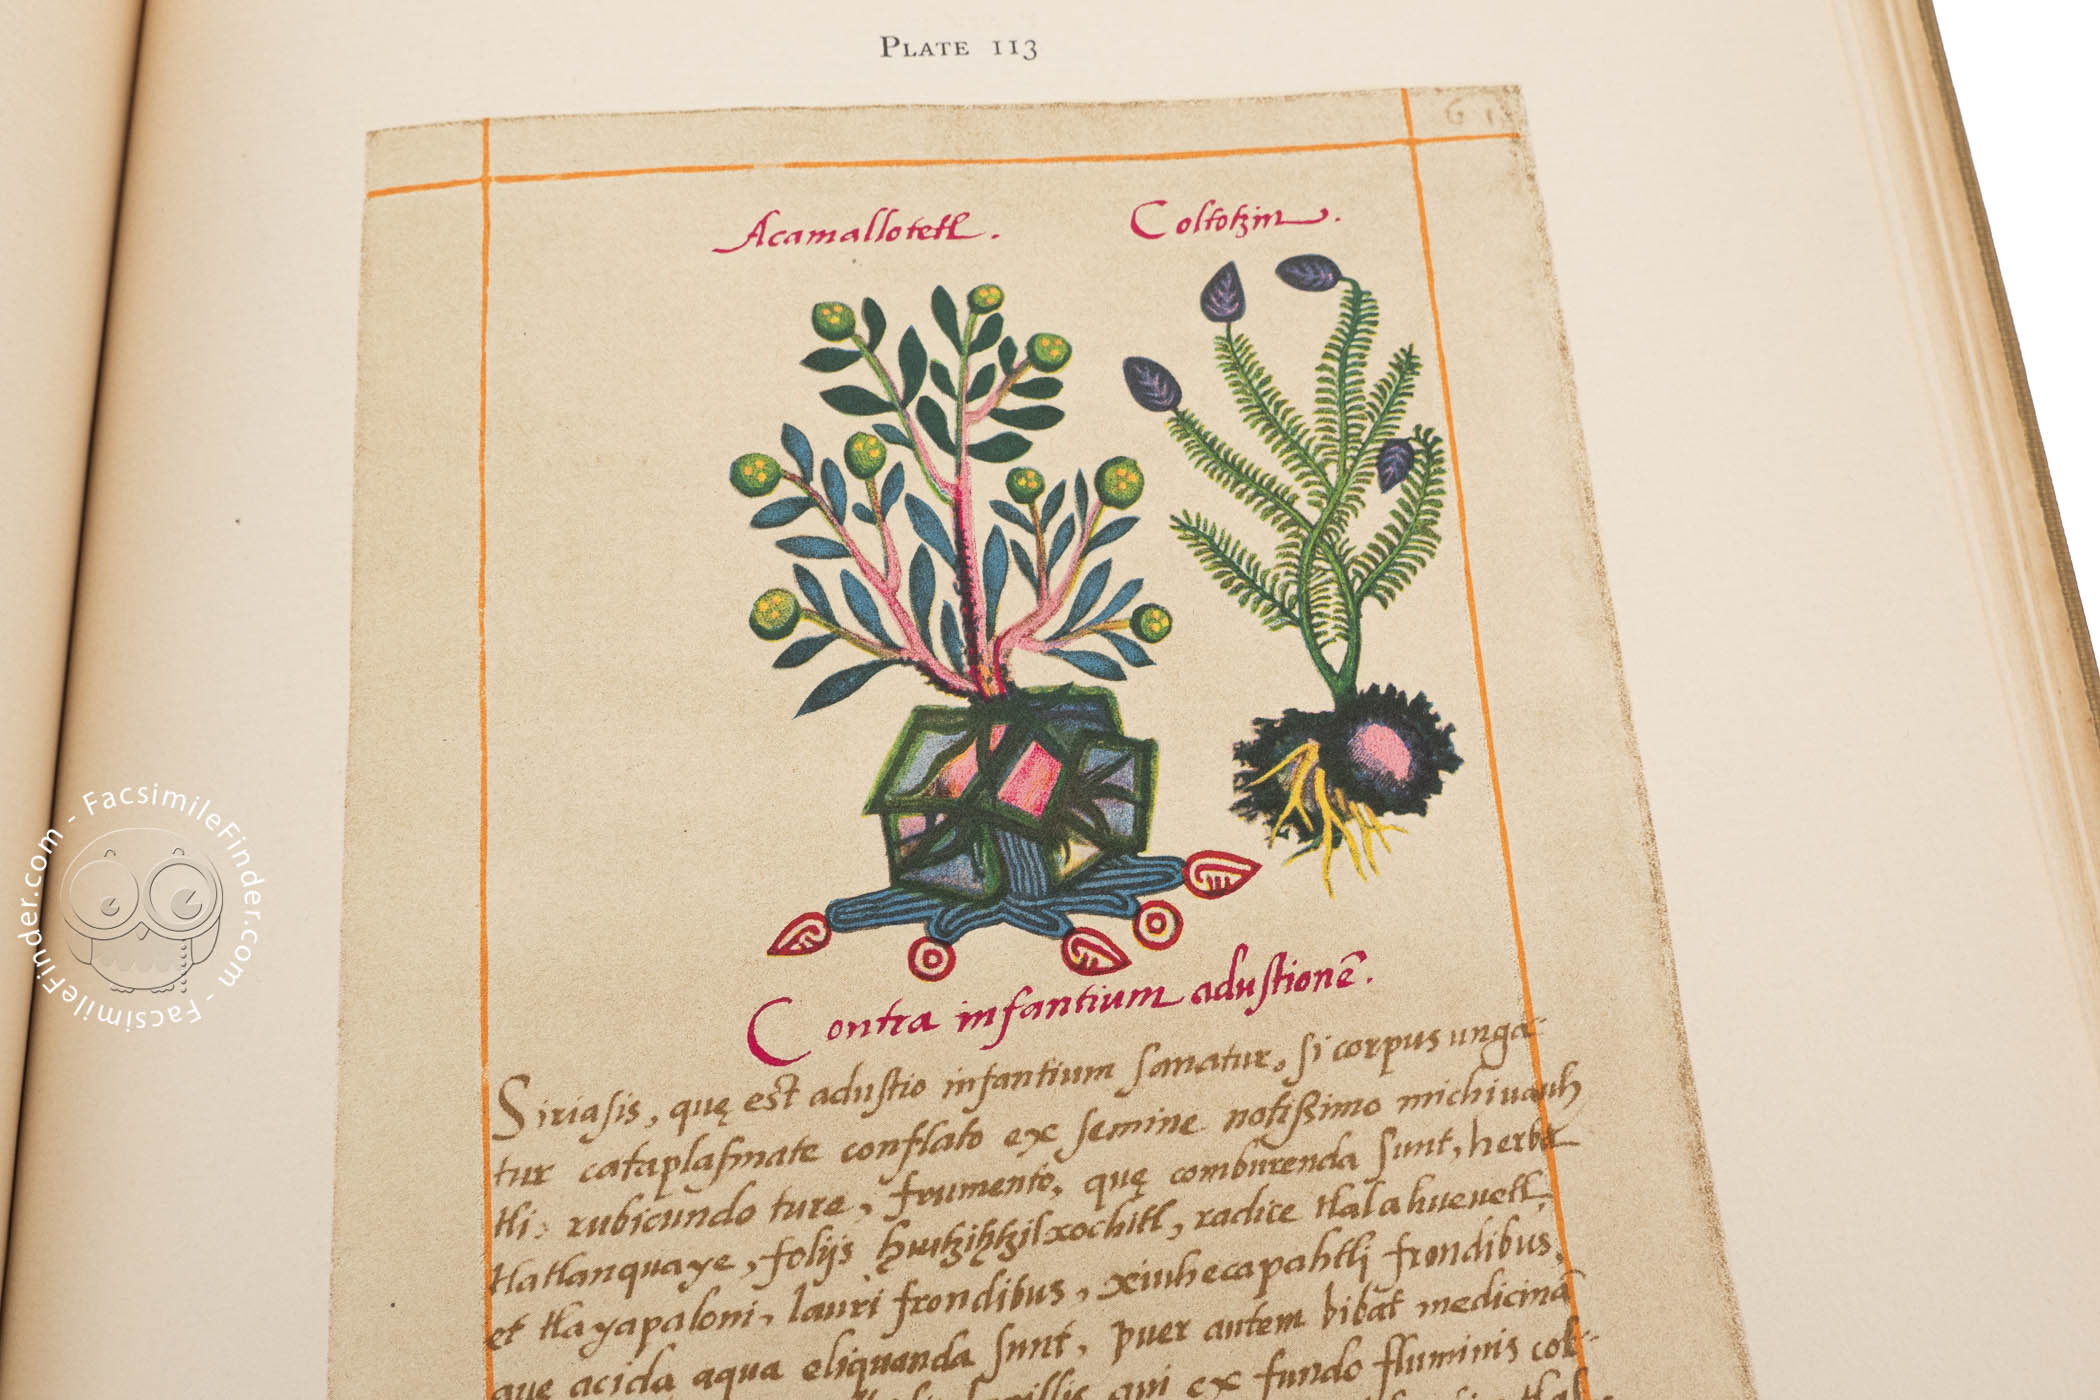 PLATE 113
61
Acamallotetl. Coltotzin.
Contra infantium adustionē.
Siriasis, quę est adustio infantium sanatur, si corpus ungā-
tur cataplasmate conflato ex semine notissimo michiuauh
tli: rubicundo ture, frumento, quę comburenda sunt, herba
tlatlanquaye, folijs huitzihtzilxochitl, radice tlalahueuetl,
et tlayapaloni, lauri frondibus, xiuhecapahtli frondibus,
que acida aqua eliquanda sunt, puer autem bibat medicinā
qui ex fundo fluminis col-
FacsimileFinder.com - FacsimileFinder.com -